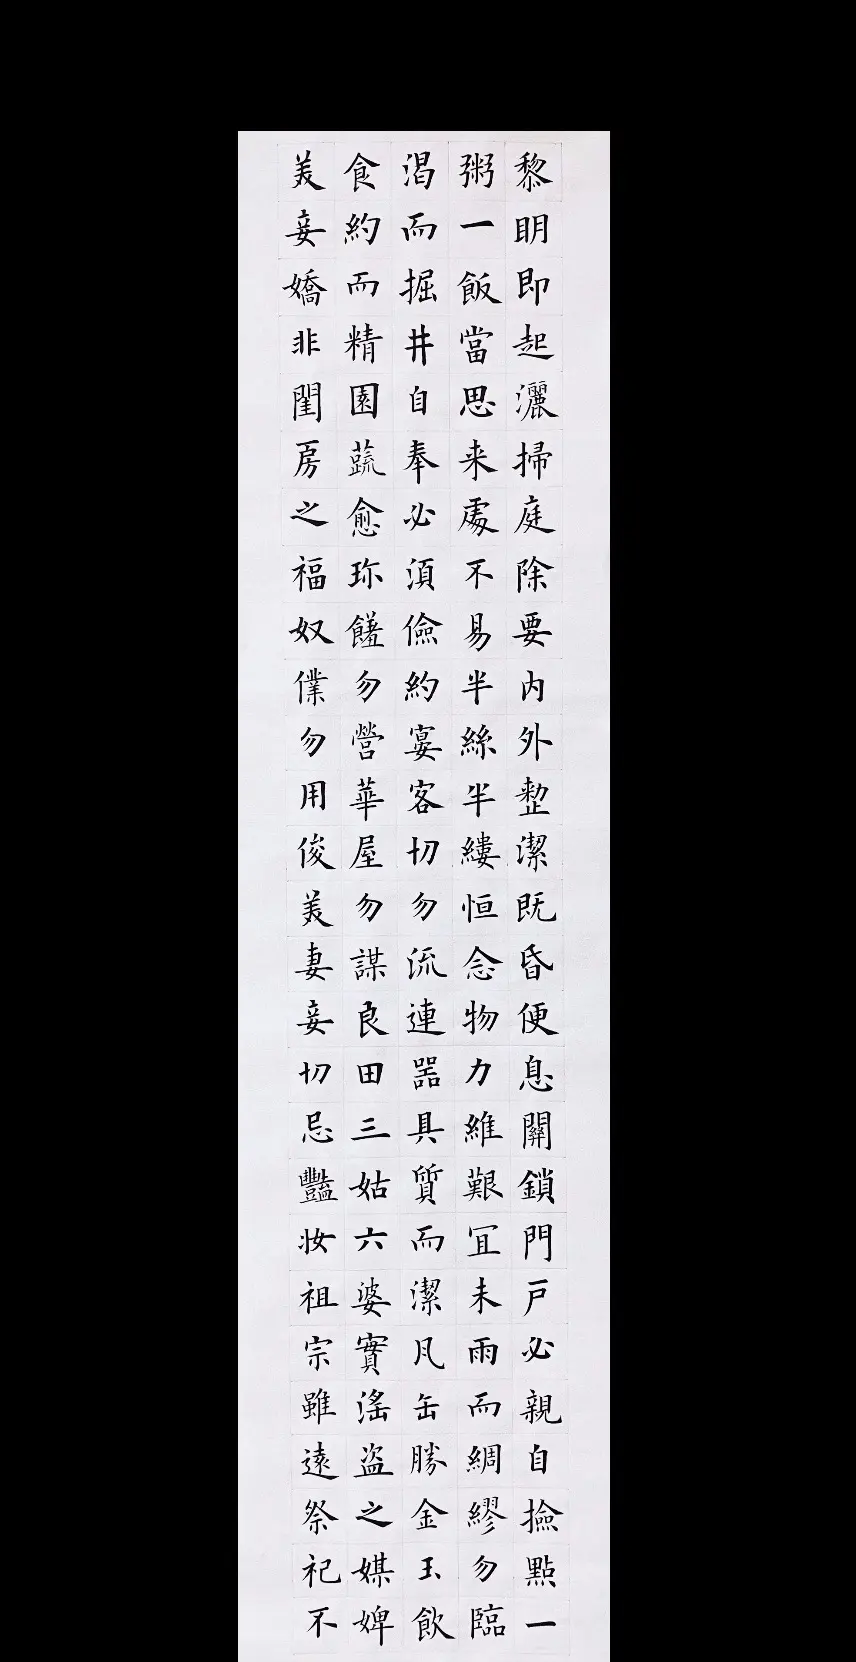 黎明即起灑掃庭除要内外整潔既昏便息關鎖門戸必親自撿點一
粥一飯當思来處不易半絲半縷恒念物力維艱冝未雨而綢繆勿臨
渴而掘井自奉必須儉約宴客切勿流連器具質而潔凡缶勝金玉飲
食約而精園蔬愈珎饈勿營華屋勿謀良田三姑六婆實滛盗之媒婢
美妾嬌非閨房之福奴僕勿用俊美妻妾切忌豔妝祖宗雖遠祭祀不